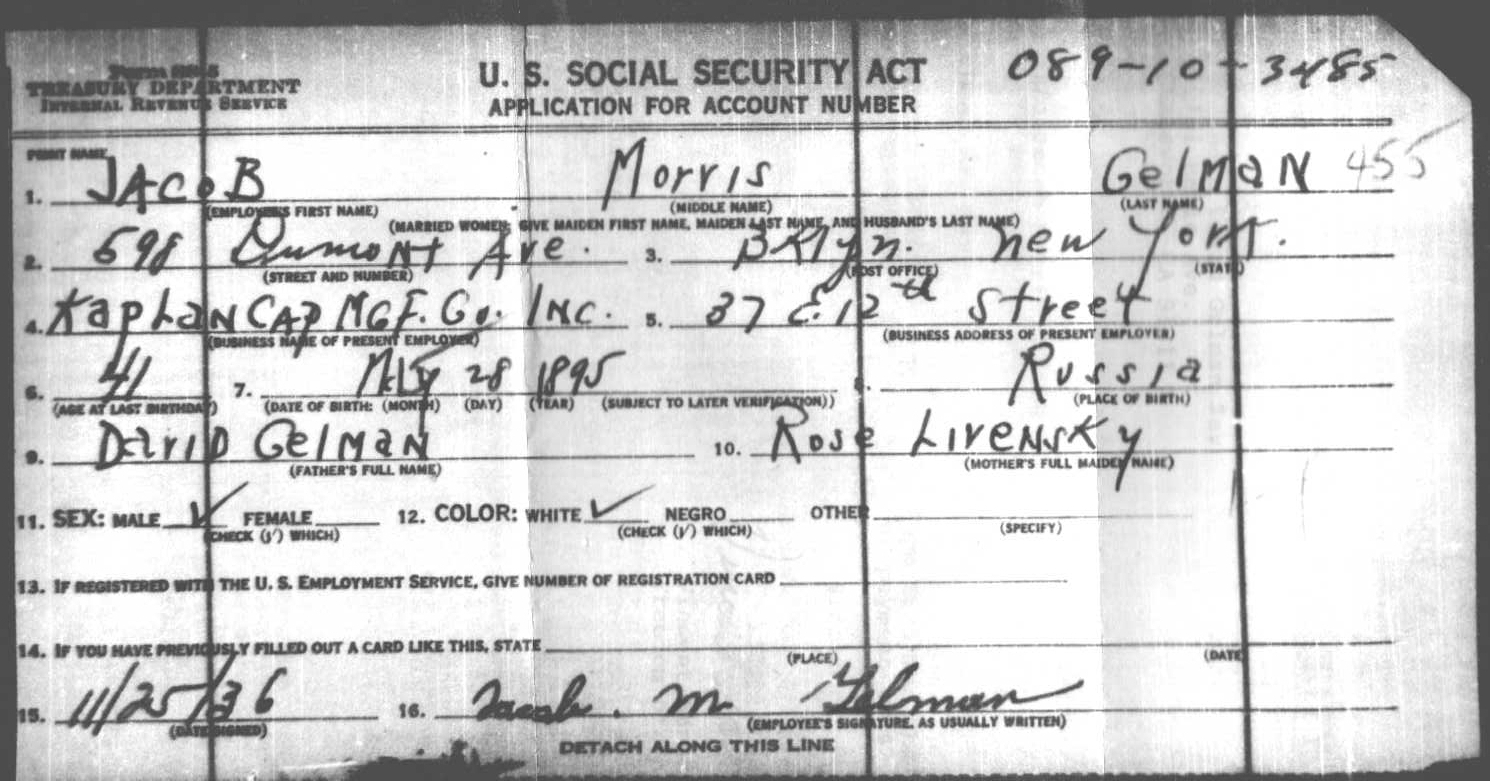 Form SS-5
TREASURY DEPARTMENT
INTERNAL REVENUE SERVICE
U. S. SOCIAL SECURITY ACT
APPLICATION FOR ACCOUNT NUMBER
089-10-3485
PRINT NAME
1. JACOB Morris GelMaN 455
(EMPLOYEE'S FIRST NAME) (MIDDLE NAME) (LAST NAME)
(MARRIED WOMEN: GIVE MAIDEN FIRST NAME, MAIDEN LAST NAME, AND HUSBAND'S LAST NAME)
2. 598 Dumont Ave. 3. BKlyn. New York.
(STREET AND NUMBER) (POST OFFICE) (STATE)
4. Kaplan Cap MGF. Co. Inc. 5. 37 E. 12th Street
(BUSINESS NAME OF PRESENT EMPLOYER) (BUSINESS ADDRESS OF PRESENT EMPLOYER)
6. 41 7. 28 1895 8. Russia
(AGE AT LAST BIRTHDAY) (DATE OF BIRTH: (MONTH) (DAY) (YEAR) (SUBJECT TO LATER VERIFICATION)) (PLACE OF BIRTH)
9. David Gelman 10. Rose Livensky
(FATHER'S FULL NAME) (MOTHER'S FULL MAIDEN NAME)
11. SEX: MALE ✓ FEMALE 12. COLOR: WHITE ✓ NEGRO OTHER
(CHECK (√) WHICH) (CHECK (√) WHICH) (SPECIFY)
13. IF REGISTERED WITH THE U. S. EMPLOYMENT SERVICE, GIVE NUMBER OF REGISTRATION CARD
14. IF YOU HAVE PREVIOUSLY FILLED OUT A CARD LIKE THIS, STATE
(PLACE) (DATE)
15. 11/25/36 16. Jacob. M. Gelman
(DATE SIGNED) (EMPLOYEE'S SIGNATURE, AS USUALLY WRITTEN)
DETACH ALONG THIS LINE